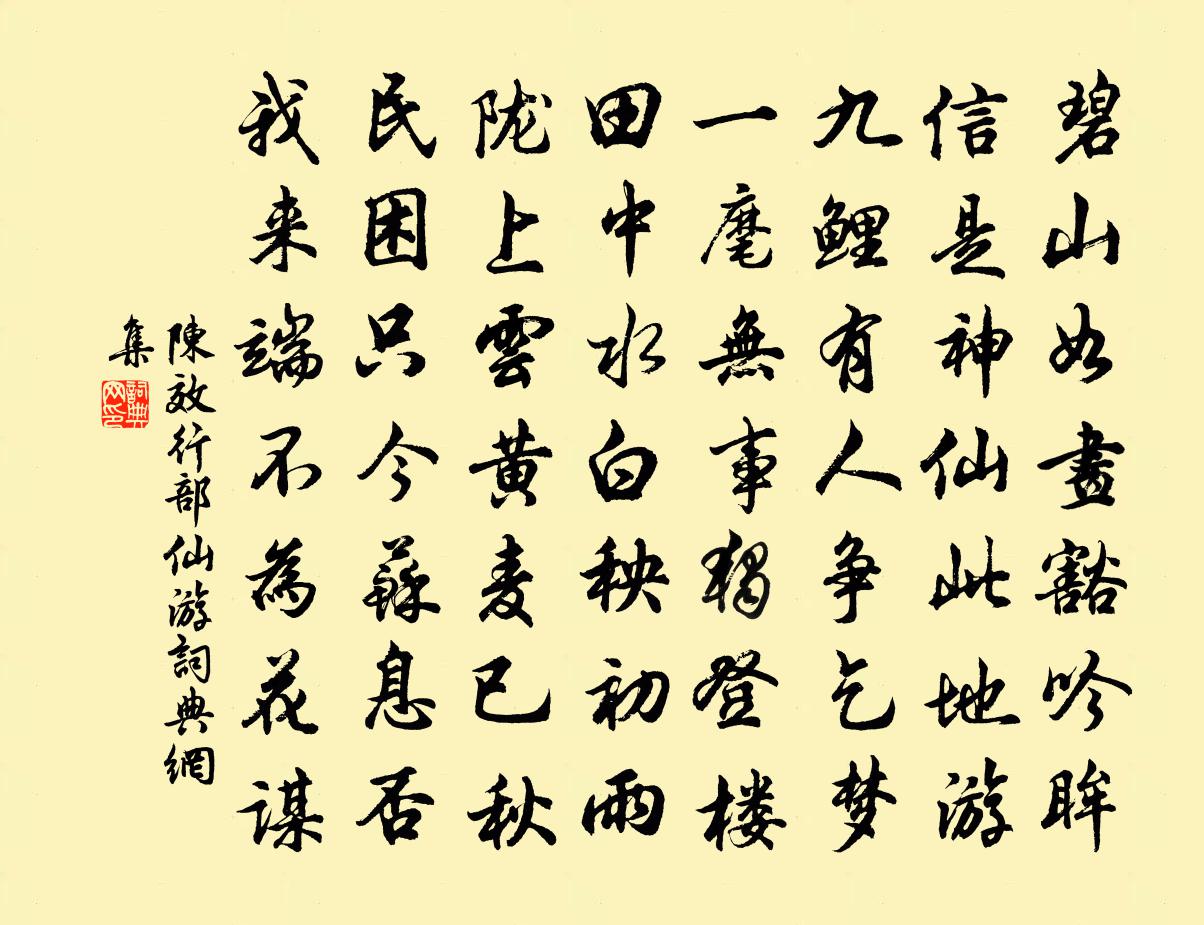 碧山如畫豁吟眸
信是神仙此地游
九鯉有人争乞梦
一麾無事獨登楼
田中水白秧初雨
陇上雲黄麦已秋
民困只今蘇息否
我来端不為花謀
陳效行部仙游詞典網
集
詞典网印